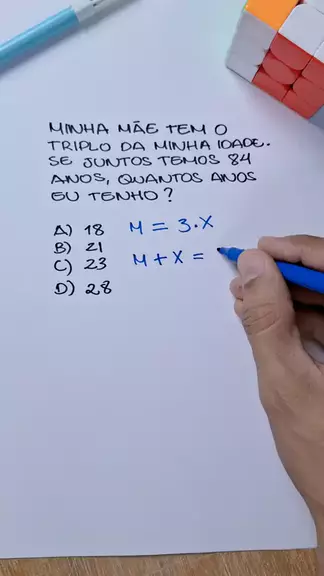 MINHA MÃE TEM O
TRIPLO DA MINHA IDADE.
SE JUNTOS TEMOS 84
ANOS, QUANTOS ANOS
EU TENHO?
A) 18 M = 3.X
B) 21
C) 23 M + X =
D) 28